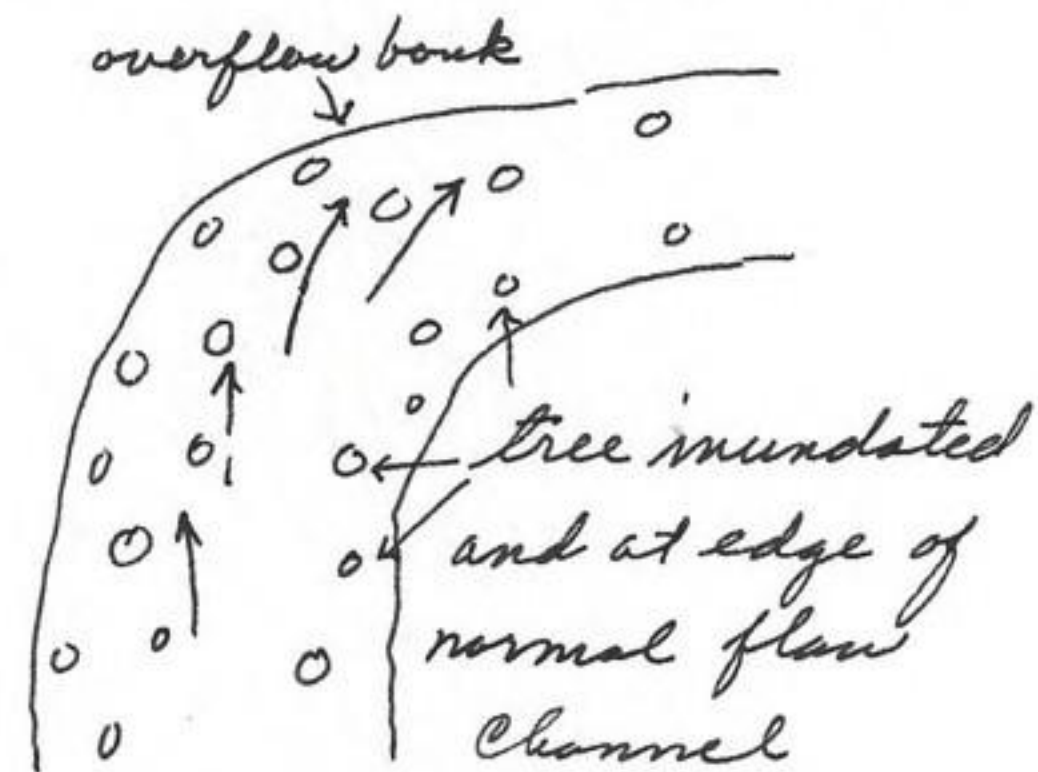 overflow bank
tree inundated
and at edge of
normal flow
channel